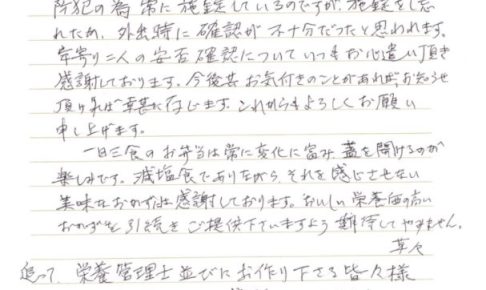 防犯の為 常に施錠しているのですが、施錠を忘
れたか、外出時に確認が不十分だったと思われます。
年寄り二人の安否確認についていつもお心遣い頂き
感謝しております。今後共お気付きのことがあれば、お知らせ
頂ければ幸甚に存じます。これからもよろしくお願い
申し上げます。
一日三食のお弁当は常に変化に富み、蓋を開けるのが
楽しみです。減塩食でありながら、それを感じさせない
美味なおかずは感謝しております。おいしい栄養価の高い
おかずを引き続きご提供下さいますよう期待してやみません。
草々
追って、栄養管理士並びにお作り下さる皆々様